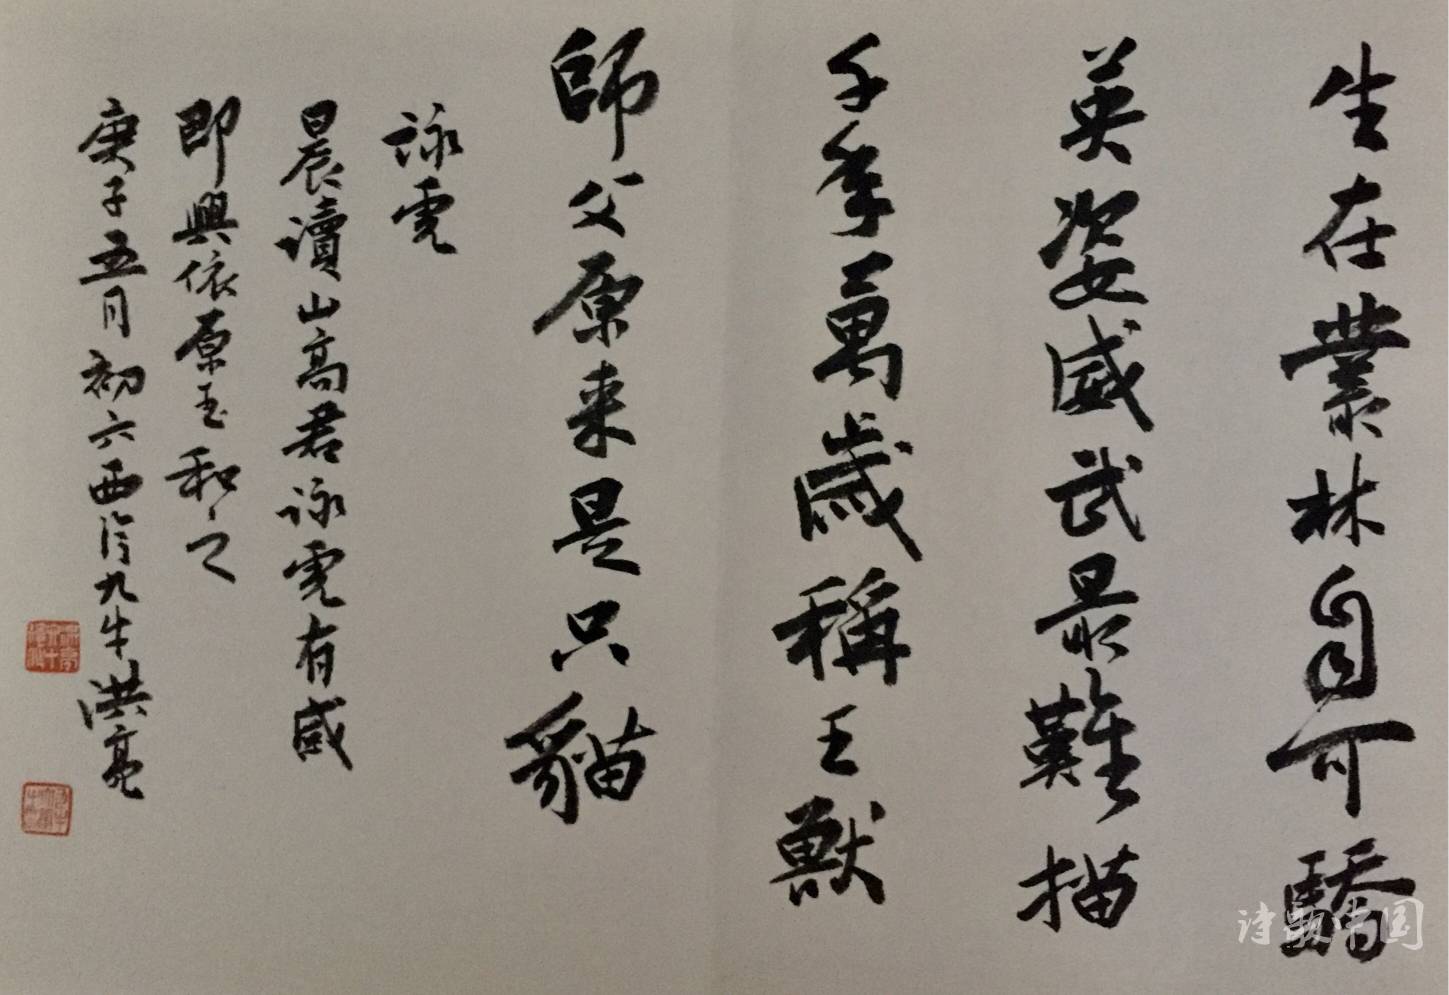 生在叢林自可驕
英姿威武最難描
千季萬歲稱王獸
師父原来是只貓
詠虎
晨讀山高君詠虎有感
即興依原玉和之
庚子五月初六西泠九牛洪亮
诗歌中国